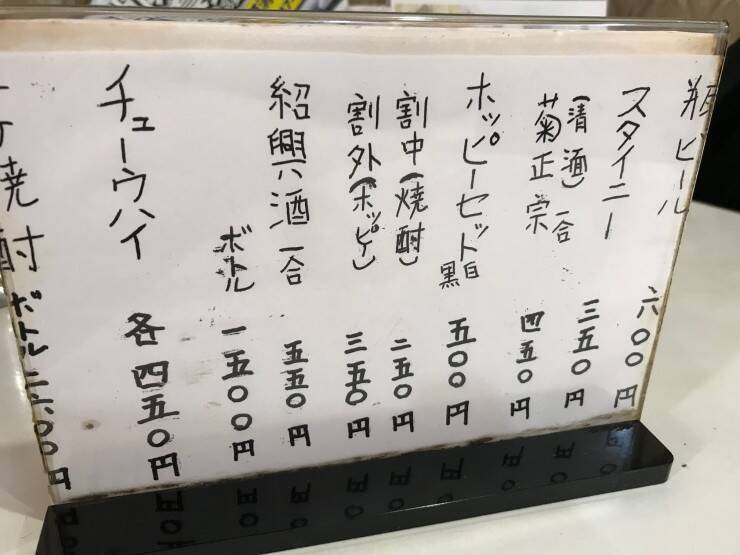 瓶ビール 六〇〇円
スタイニー 三五〇円
(清酒)菊正宗 一合 四五〇円
ホッピーセット 白 黒 五〇〇円
割中(焼酎) 二五〇円
割外(ホッピー) 三五〇円
紹興酒 一合 五五〇円
ボトル 一五〇〇円
チューウハイ 各四五〇円
焼酎ボトル 二六〇〇円